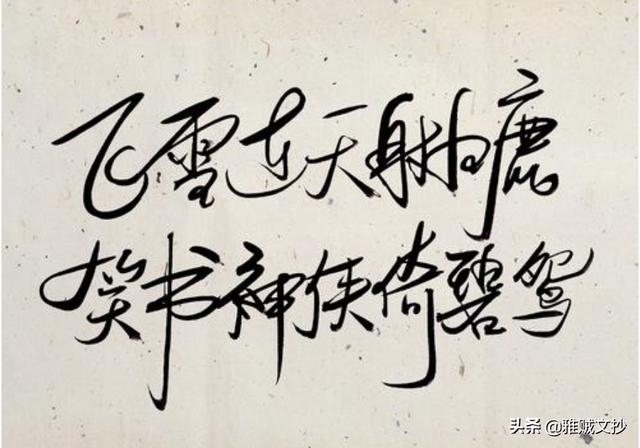 飞雪连天射白鹿
笑书神侠倚碧鸳
头条 @雅贼文抄